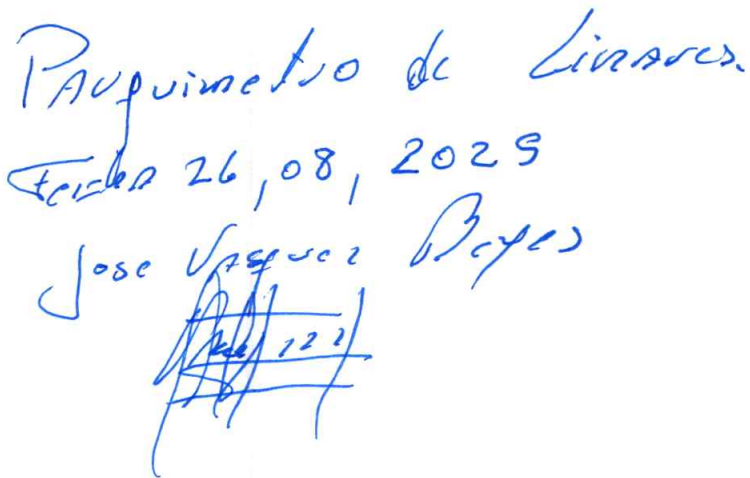 Parquimetro de Linares.
Fecha 26,08,2025
Jose Vasquez Reyes